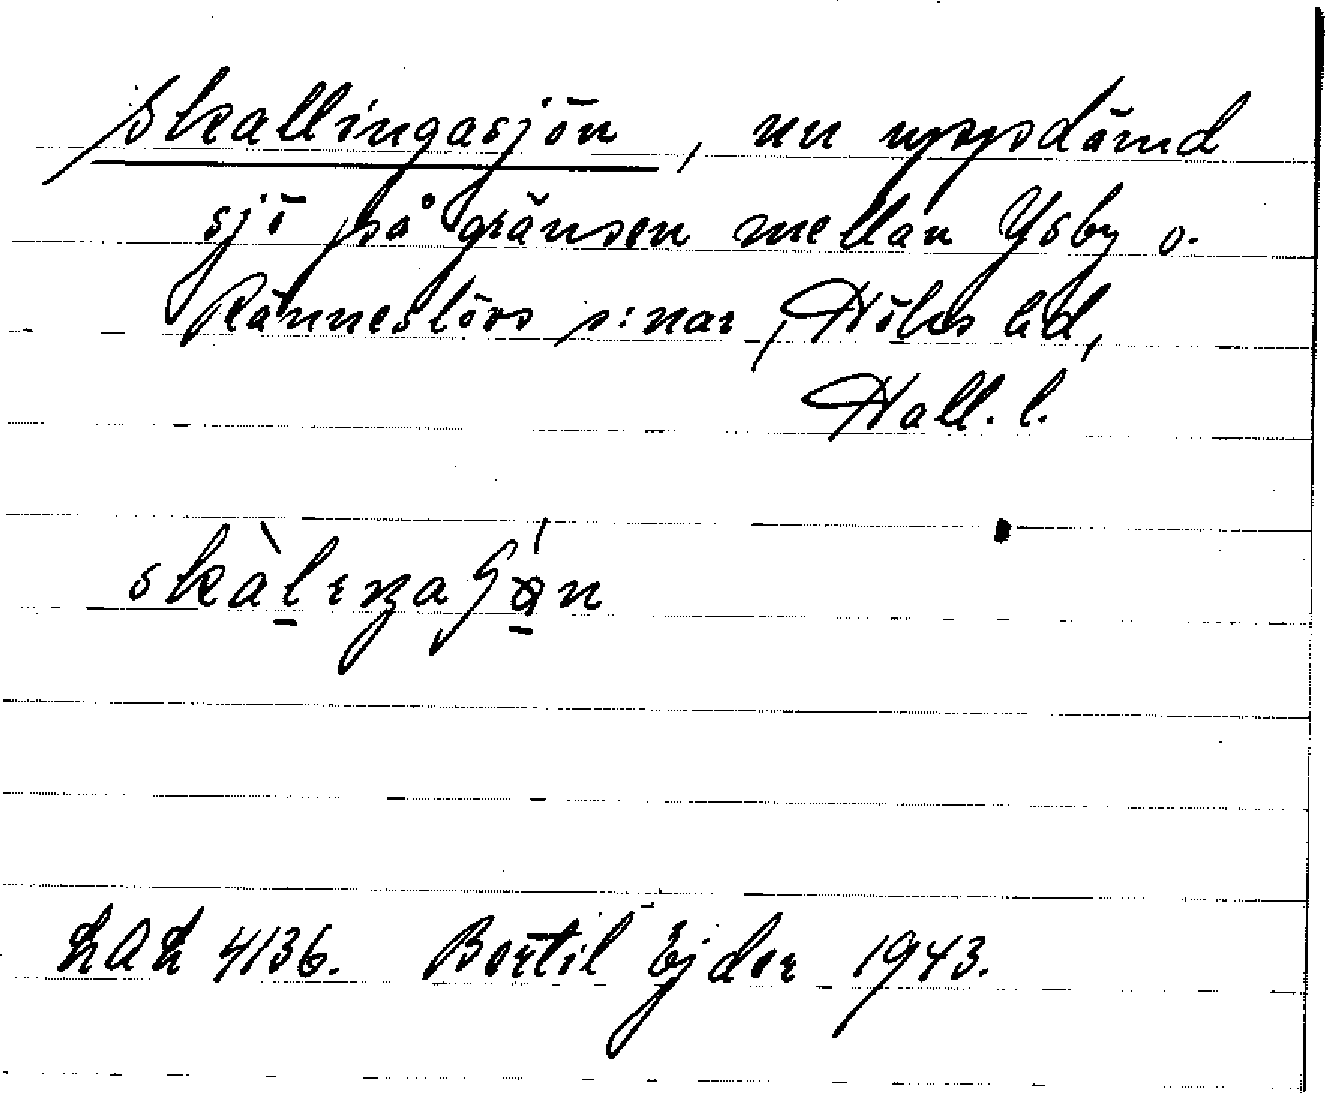 Skallingasjön, nu uppdämd
sjö på gränsen mellan Ysby o.
Ränneslövs s:nar, Höks hd,
Hall. l.
LAL 4136. Bertil Ejder 1943.